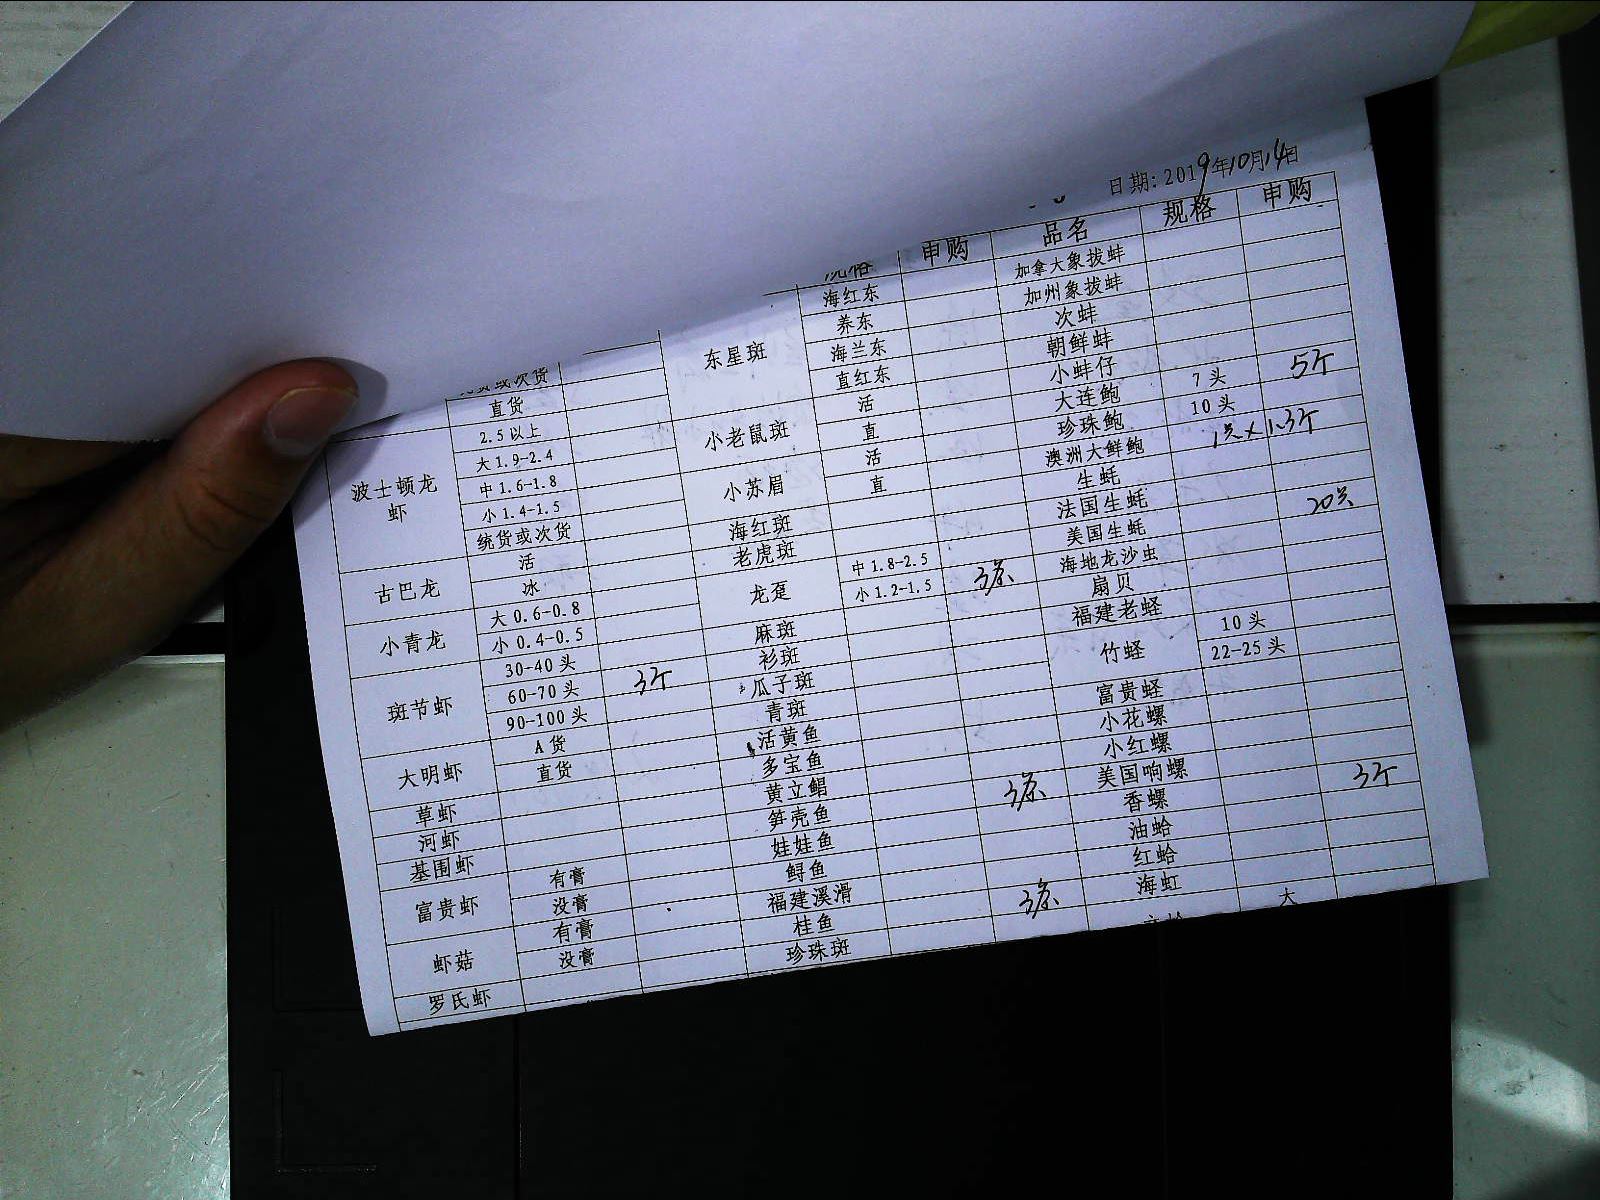 日期: 2019年10月14日
申购 品名 规格 申购
海红东 加拿大象拔蚌
养东 加州象拔蚌
东星斑 海兰东 次蚌
直红东 朝鲜蚌
直货 活 小蚌仔
2.5以上 小老鼠斑 直 大连鲍 7头 5个
大1.9-2.4 活 珍珠鲍 10头
波士顿龙虾 中1.6-1.8 小苏眉 直 澳洲大鲜鲍
小1.4-1.5 生蚝
统货或次货 海红斑 法国生蚝 20头
活 老虎斑 美国生蚝
古巴龙 冰 龙趸 中1.8-2.5 海地龙沙虫
大0.6-0.8 小1.2-1.5 3条 扇贝
小青龙 小0.4-0.5 麻斑 福建老蛏
30-40头 衫斑 竹蛏 10头
斑节虾 60-70头 3个 瓜子斑 22-25头
90-100头 青斑 富贵蛏
A货 活黄鱼 小花螺
大明虾 直货 多宝鱼 小红螺
草虾 黄立鲳 3条 美国响螺
河虾 笋壳鱼 香螺 3个
基围虾 娃娃鱼 油蛤
富贵虾 有膏 鲟鱼 红蛤
没膏 福建溪滑 3条 海虹
虾菇 有膏 桂鱼 大
没膏 珍珠斑
罗氏虾